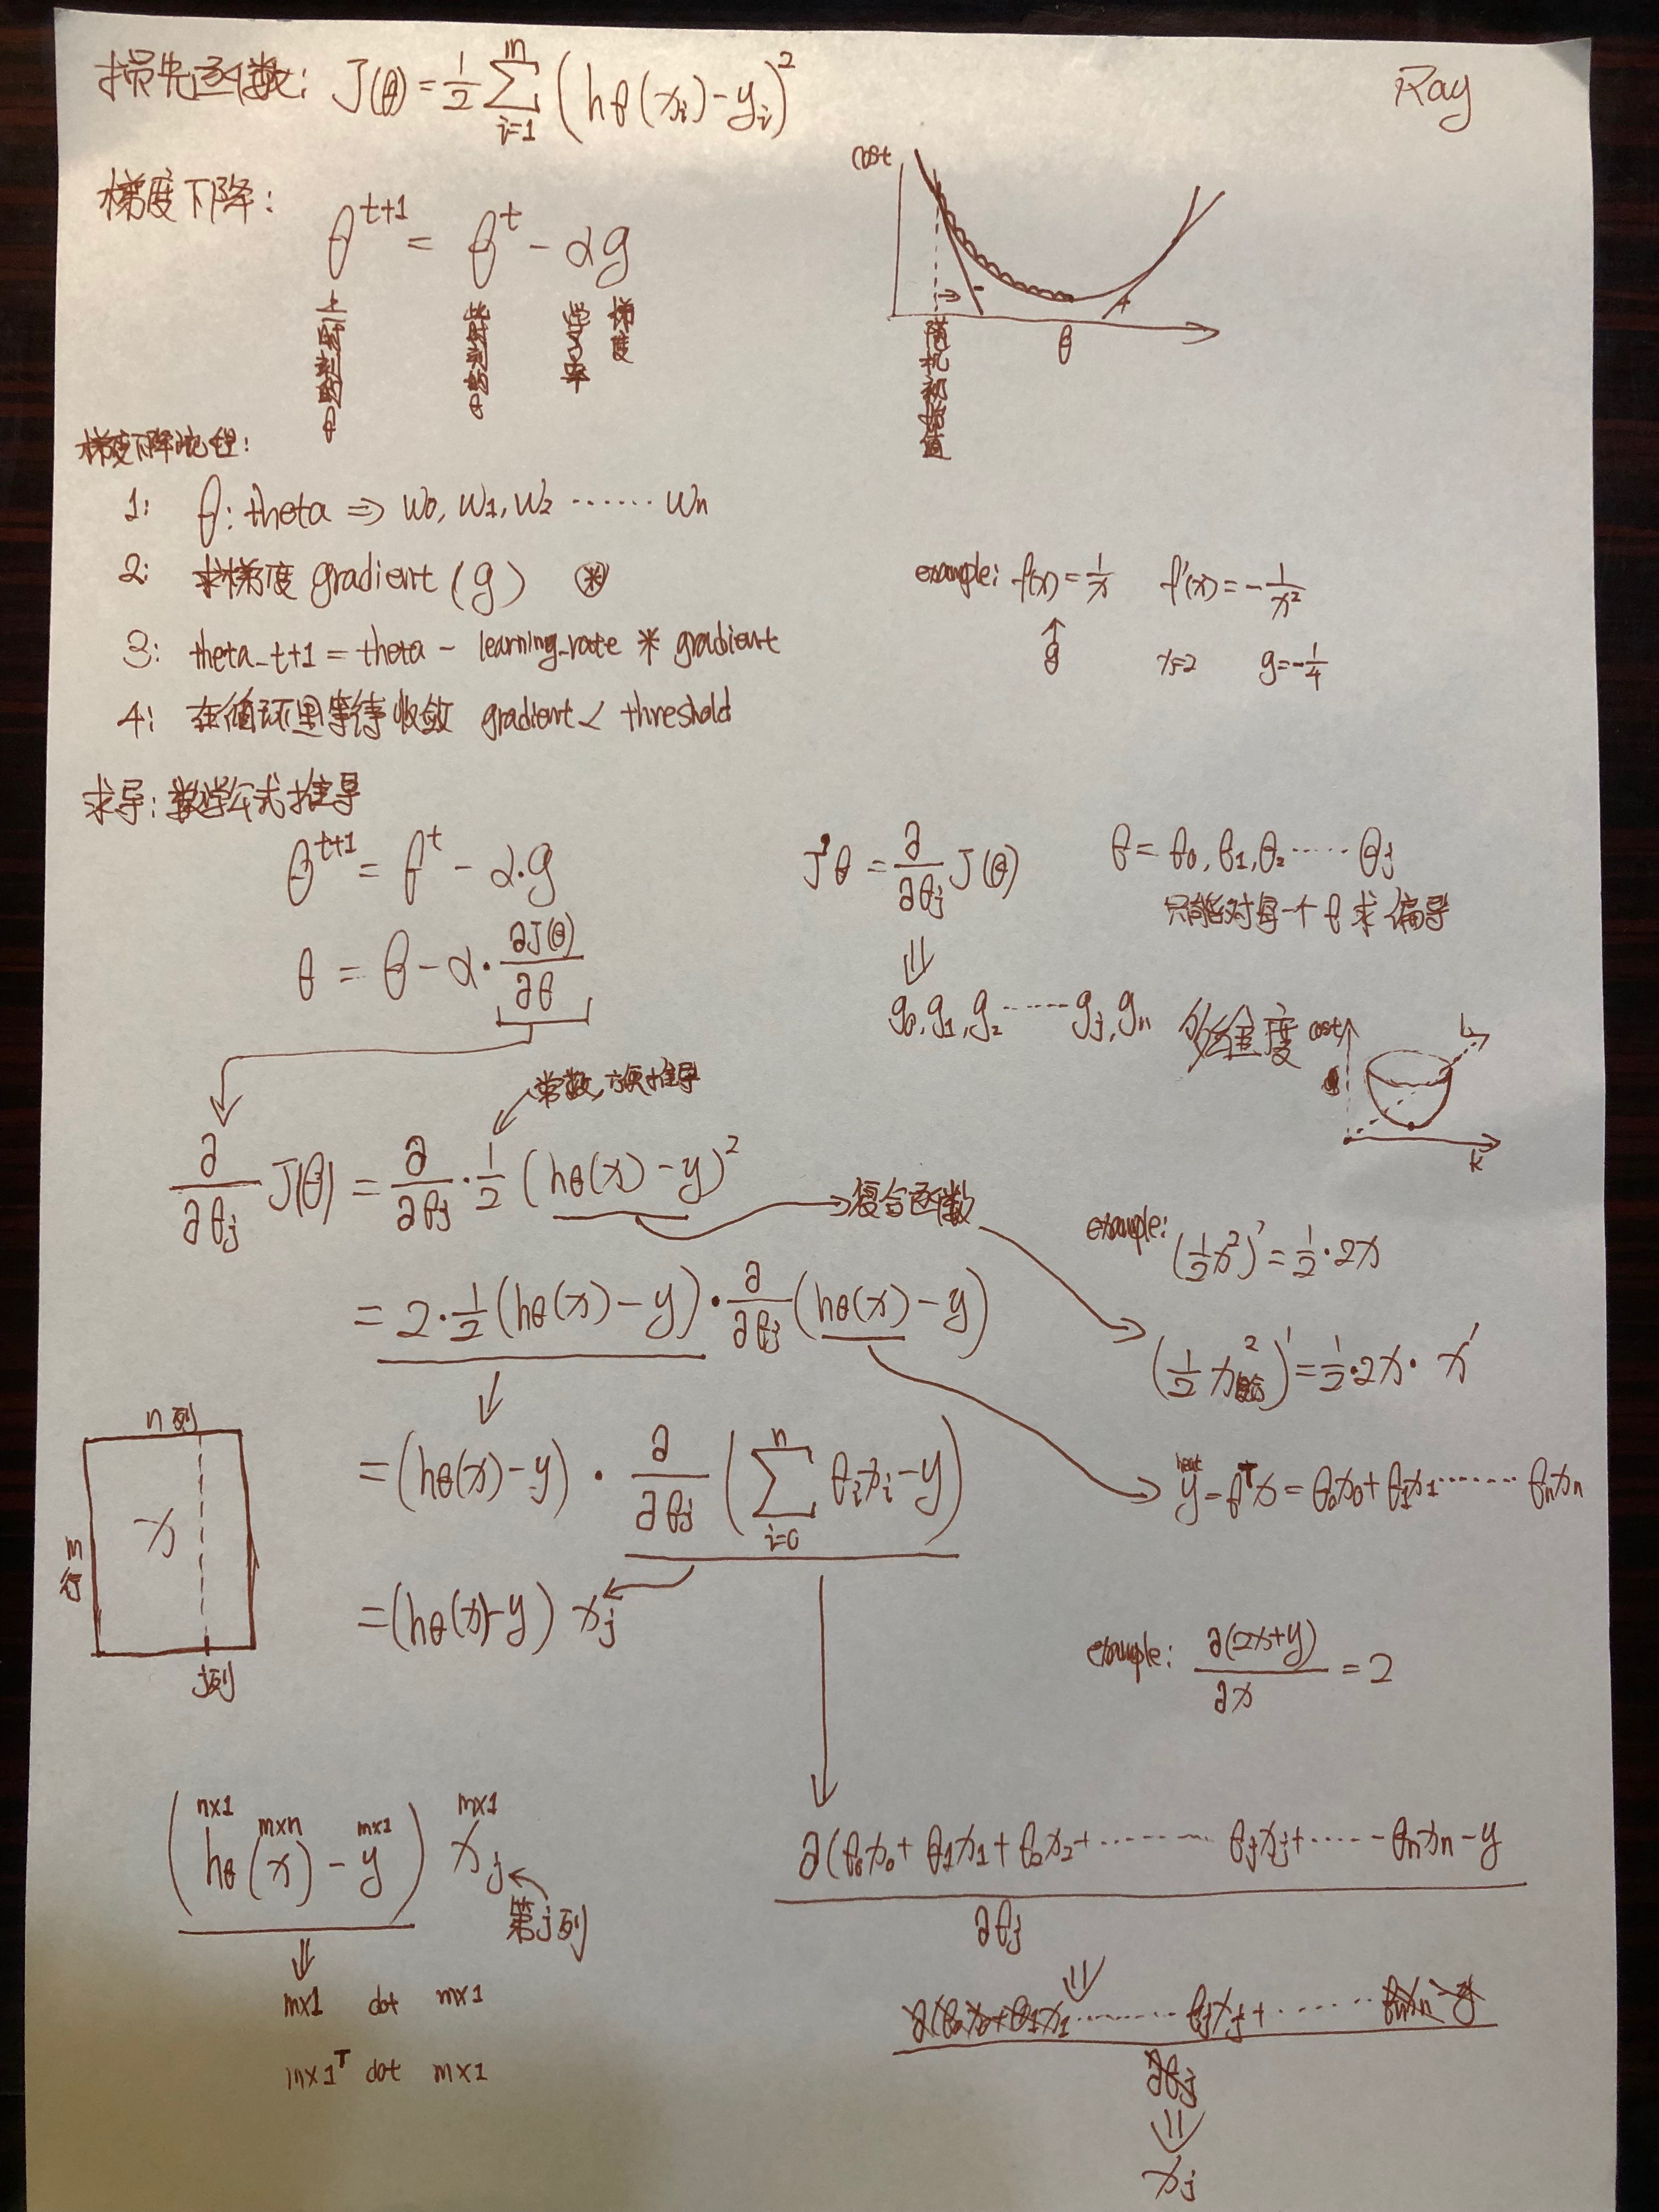 损失函数: J(θ) = 1/2 ∑_{i=1}^{m} (hθ(xi) - yi)²
Ray
梯度下降:
θ^{t+1} = θ^t - αg
上一时刻的θ
此时刻的θ
学习率
梯度
cost
θ
随机初始值
梯度下降流程:
1: θ: theta ⇒ w0, w1, w2 ······ wn
2: 求梯度 gradient (g) ⊛
3: theta_t+1 = theta - learning_rate * gradient
4: 在循环里等待收敛 gradient < threshold
example: f(x) = 1/x f'(x) = -1/x²
↑
θ x=2 g=-1/4
求导: 数学公式推导
θ^{t+1} = θ^t - α·g
θ = θ - α · ∂J(θ)/∂θ
J'θ = ∂/∂θj J(θ)
θ = θ0, θ1, θ2 ······ θj
只能对每一个θ求偏导
⇓
g0, g1, g2 ······ gj, gn 多维度
cost
b
k
常数,方便推导
∂/∂θj J(θ) = ∂/∂θj · 1/2 (hθ(x) - y)²
复合函数
= 2 · 1/2 (hθ(x) - y) · ∂/∂θj (hθ(x) - y)
example: (1/2 x²)' = 1/2 · 2x
(1/2 x复合²)' = 1/2 · 2x · x'
= (hθ(x) - y) · ∂/∂θj (∑_{i=0}^{n} θixi - y)
y = θ^T x = θ0x0 + θ1x1 ······ θnxn
= (hθ(x) - y) xj
n列
x
m行
j列
example: ∂(2x+y)/∂x = 2
n×1 m×n m×1 m×1
(hθ(x) - y) xj
第j列
⇓
m×1 dot m×1
m×1^T dot m×1
∂(θ0x0 + θ1x1 + θ2x2 + ······ θjxj + ······ θnxn - y
∂θj
⇓
∂(θ0x0 + θ1x1 ······ θjxj + ······ θnxn - y
∂θj
⇓
xj